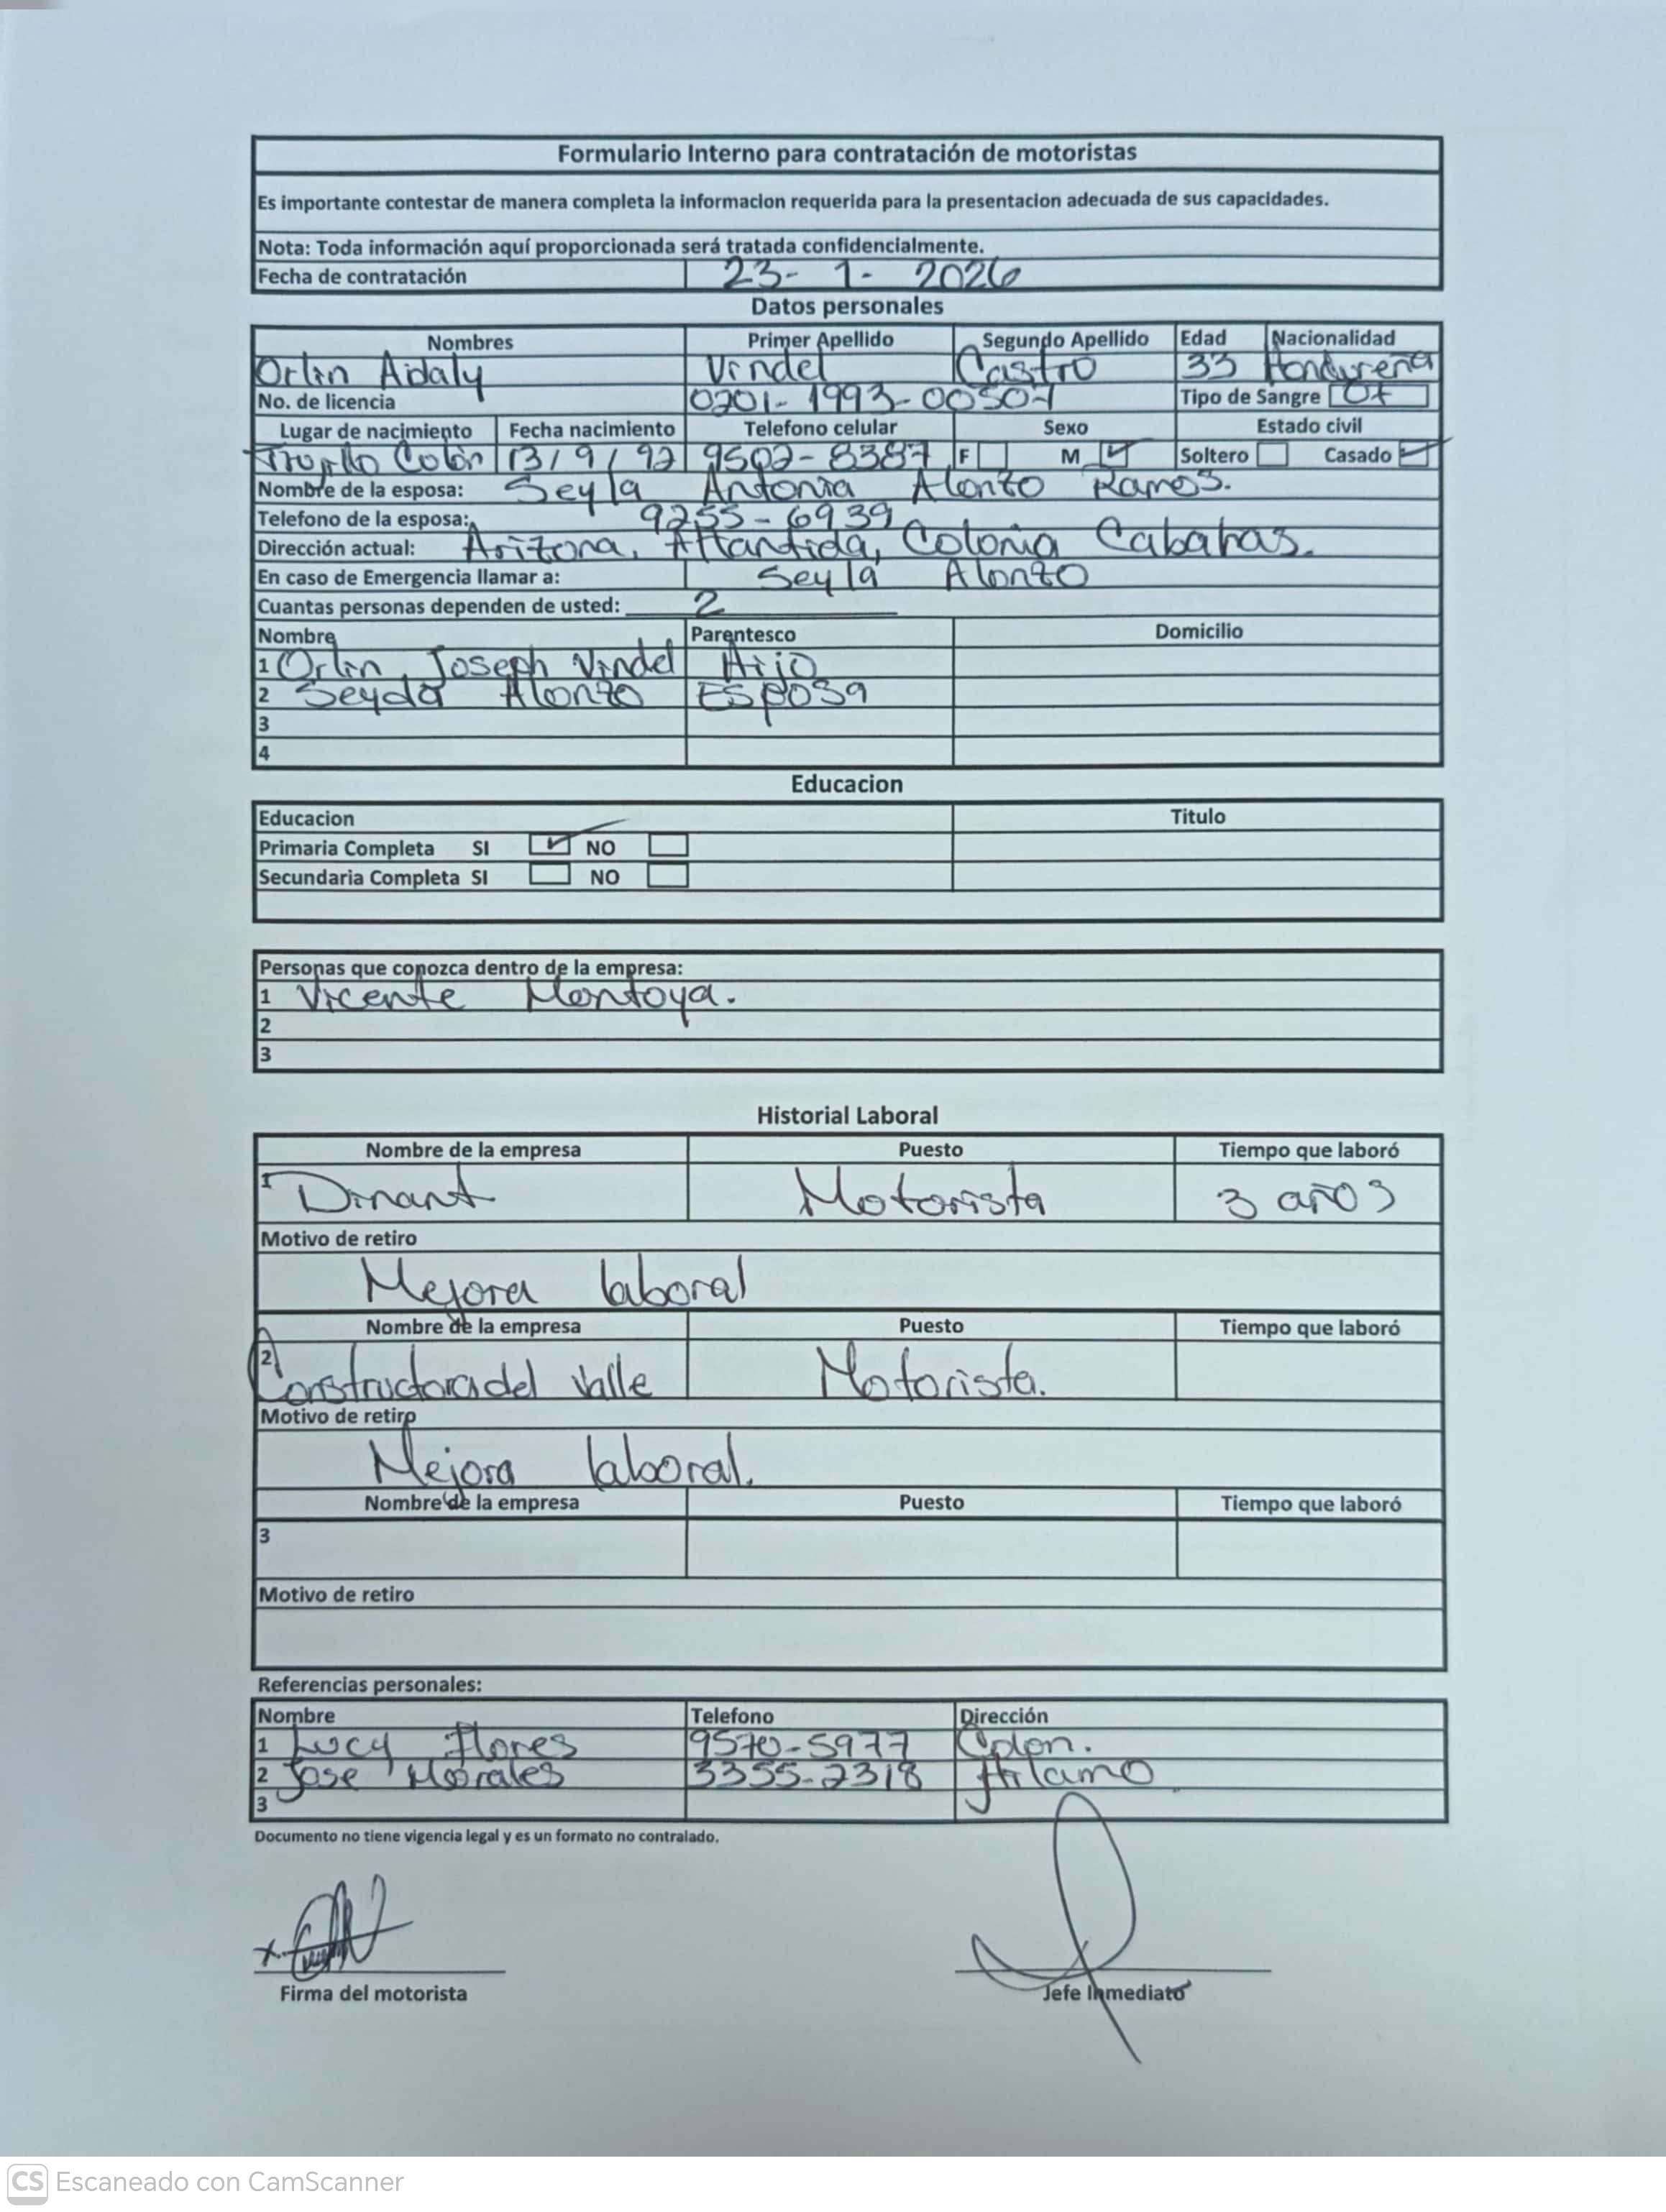 Formulario Interno para contratación de motoristas
Es importante contestar de manera completa la informacion requerida para la presentacion adecuada de sus capacidades.
Nota: Toda información aquí proporcionada será tratada confidencialmente.
Fecha de contratación 23- 1- 2026
Datos personales
Nombres Primer Apellido Segundo Apellido Edad Nacionalidad
Orlin Adaly Vindel Castro 33 Hondureña
No. de licencia 0201-1993-00507 Tipo de Sangre O+
Lugar de nacimiento Fecha nacimiento Telefono celular Sexo Estado civil
Trujillo Colón 13/9/92 9502-8387 F M Soltero Casado
Nombre de la esposa: Seyla Antonia Alonzo Ramos.
Telefono de la esposa: 9255-6939
Dirección actual: Arizona, Atlantida, Colonia
En caso de Emergencia llamar a: Seyla Alonzo
Cuantas personas dependen de usted: 2
Nombre Parentesco Domicilio
1 Orlin Joseph Vindel Hijo
2 Seyda Alonzo Esposa
3
4
Educacion
Educacion Titulo
Primaria Completa SI NO
Secundaria Completa SI NO
Personas que conozca dentro de la empresa:
1 Vicente Montoya.
2
3
Historial Laboral
Nombre de la empresa Puesto Tiempo que laboró
1 Dinant Motorista 3 años
Motivo de retiro
Mejora laboral
Nombre de la empresa Puesto Tiempo que laboró
2 Constructora del Valle Motorista.
Motivo de retiro
Mejora laboral.
Nombre de la empresa Puesto Tiempo que laboró
3
Motivo de retiro
Referencias personales:
Nombre Telefono Dirección
1 Lucy Flores 9570-5977 Colon.
2 Jose Morales 3355-2318
3
Documento no tiene vigencia legal y es un formato no contralado.
Firma del motorista Jefe Inmediato
CS Escaneado con CamScanner